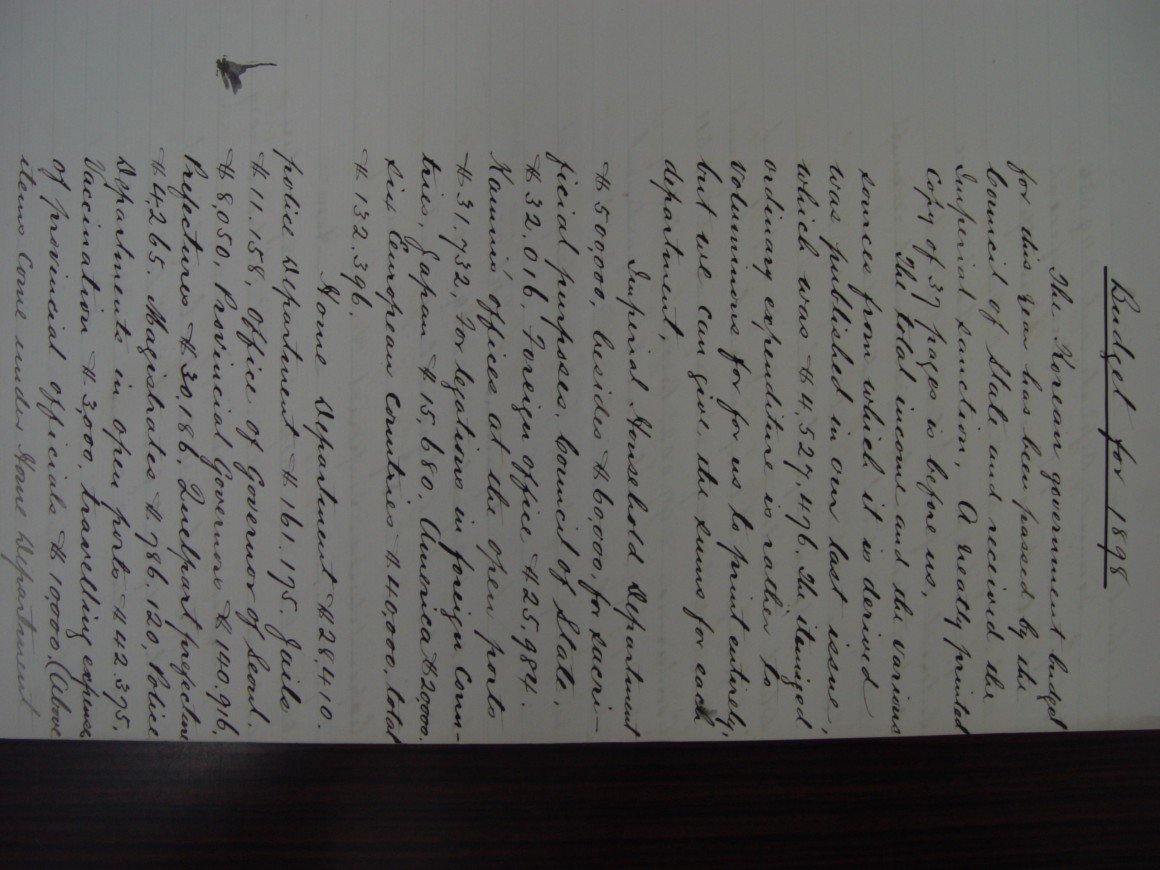 Budget for 1898
The Korean government budget
for this year has been passed by the
Council of State and received the
Imperial sanction. A neatly printed
copy of 37 pages is before us.
The total income and the various
sources from which it is derived
was published in our last issue,
which was $4,527,476. The itemized
ordinary expenditure is rather to
voluminous for us to print entirely,
but we can give the sums for each
department.
Imperial Household Department
$500,000. besides $60,000, for sacri-
ficial purposes. Council of State,
$32,016. Foreign office $25,984.
Kamnis' offices at the open ports
$31,732, For legations in foreign Coun-
tries, Japan $15,680. America $20,000.
six European Countries $40,000. total
$132,396.
Home Department $28,410.
police Department $161,175. Jails
$11,158, Office of Governor of Seoul.
$8,050, Provincial Governors $140,96,
Prefectures $30,186, Quelpart prefecture
$4,265. Magistrates $786,120, Police
Departments in open ports $42,375.
Vaccination $3,000, travelling expenses
of provincial officials $10000 (Above
items come under Home Department